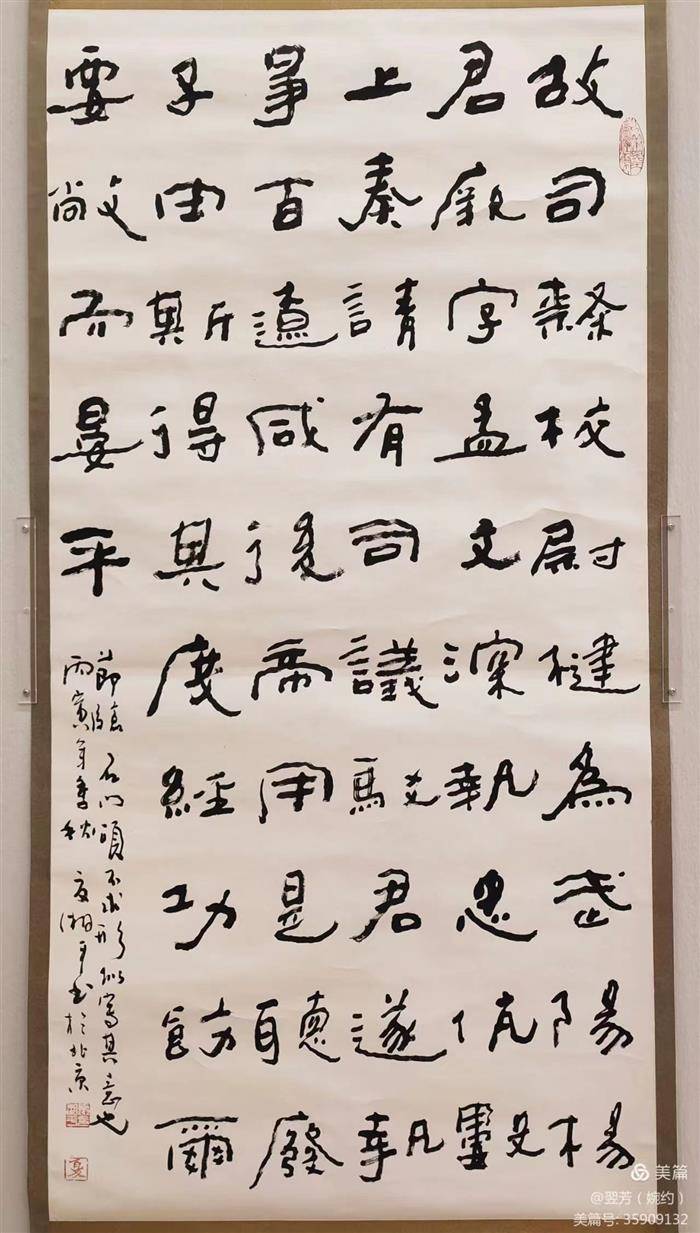 故司隸校尉楗為武陽楊
君厥字孟文深執忠伉數
上奏請有司議駮君遂執
爭百遼咸從帝用是聽廢
子由斯得其度經功飭爾
要敞而晏平
節臨石門頌不求形似寫其意也
丙寅年季秋夏湘平書於北京
夏
美篇
@翌芳（婉约）
美篇号: 35909132